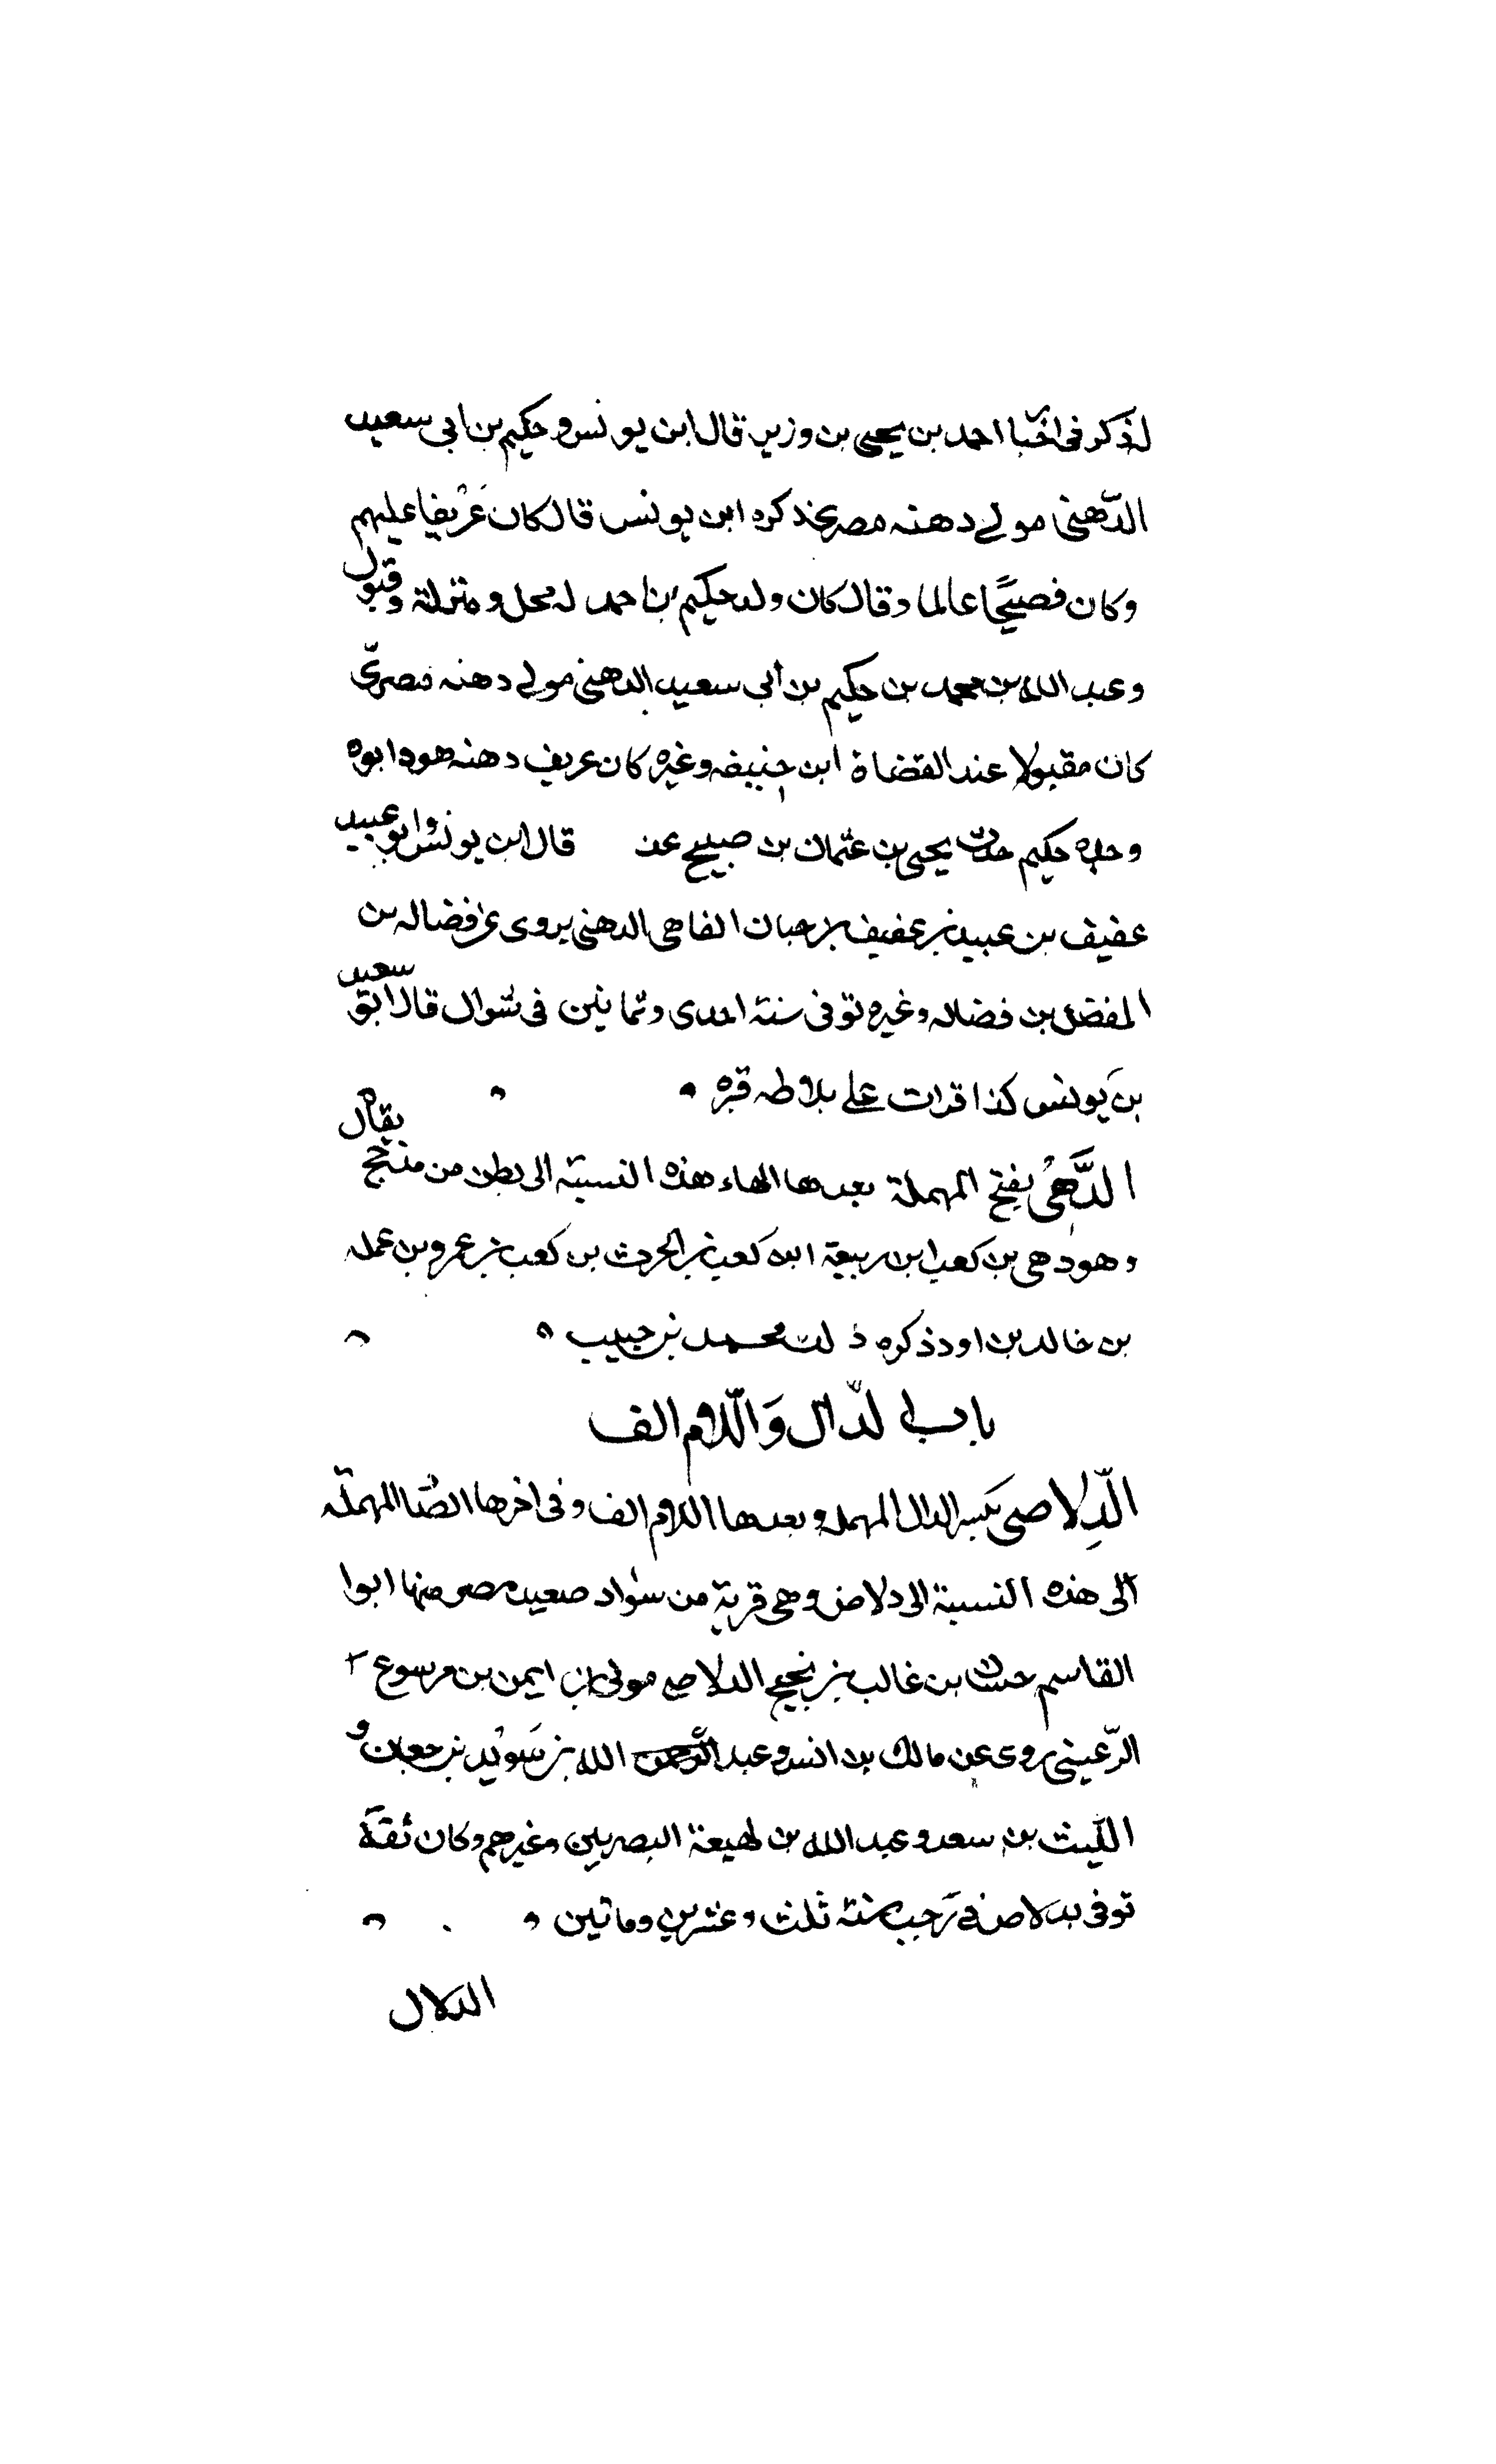 له ذكر في اخبا احمد بن يحيى بن وزير قال ابن يونس و حكيم بن ابي سعيد
الدّهني مولى دهنه مصري ذكره ابن يونس قال كان عريفا عليهم
وكان فصيحًا عالما وقال كان ولد حكيم بن احمد له محل و منزلة وقبول
وعبد الله بن محمد بن حكيم بن أبي سعيد الدهني مولى دهنه مصريّ
كان مقبولا عند القضاة ابن حنيفه وغيره كان عريف دهنه هو وابوه
وجده حكيم حدث يحيى بن عثمان بن صبيح عنه قال ابن يونس وابو عبيد
عفيف بن عبيد بن عفيف بن حبان الفاهى الدهني يروى عن فضاله بن
المفضل بن فضاله وغيره توفى سنة احدى وثمانين في شوال قال ابو سعيد
بن يونس كذا قرات على بلاطه قبره
الدَّهْىُ بفتح المهملة بعدها الهاء هذه النسبة الى بطن من مذحج يقال
وهو دهى بن كعب ابن ربيعة ابن كعب بن الحرث بن كعب بن عمرو بن عمله
بن خالد بن اود ذكره ذلك محمد بن حبيب
باب الدّال وَاللّام الف
الدِّلاصى بكسر الدال المهمله وبعدها اللام الف وفى اخرها الصّا المهملة
الى هذه النسبة الى دلاص وهى قرية من سواد صعيد مصر منها ابوا
القاسم حسان بن غالب بن نجيح الدلاصى مولى ايمن بن مرسوع
الرّعينى روى عن مالك بن انس و عبد الرحمن الله بن سَويْد بن حبان و
اللّيث بن سعد و عبد الله بن لهيعة البصريين وغيرهم وكان ثقة
توفى بدلاص في رَجب سنة ثلث وعشرين وماتين
الدلال